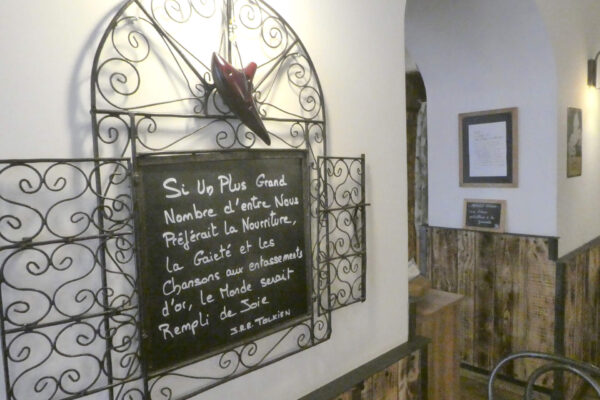 Si Un Plus Grand
Nombre d'entre Nous
Préférait la Nourriture,
la Gaieté et les
Chansons aux entassements
d'or, le Monde serait
Rempli de Joie
J.R.R. Tolkien